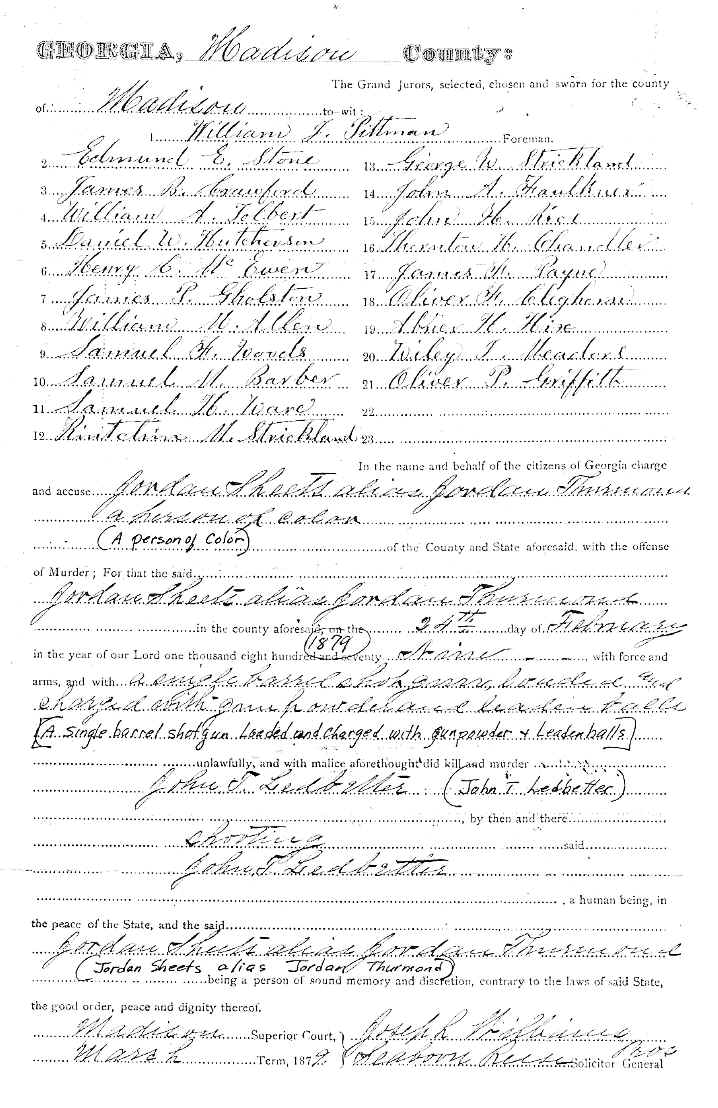 GEORGIA, Madison County:
The Grand Jurors, selected, chosen and sworn for the county
of Madison to-wit:
1 William J. Pittman Foreman.
2 Edmund E. Stone
3 James B. Crawford
4 William A. Tolbert
5 Daniel W. Hutcherson
6 Henry C. McEwen
7 James P. Gholston
8 William M. Allen
9 Samuel H. Woods
10 Samuel M. Barber
11 Samuel H. Ware
12 M. Strickland
13 George W. Strickland
14 John A. Faulkner
15 John H. Rice
16 Thornton H. Chandler
17 James M. Payne
18 Oliver H. Cleghorn
19 Abner H. Hix
20 Wiley T. Meadors
21 Oliver P. Griffith
22
23
In the name and behalf of the citizens of Georgia charge
and accuse Jordan Sheets alias Jordan Thurmond
a person of color
(A person of Color) of the County and State aforesaid, with the offense
of Murder; For that the said
Jordan Sheets alias Jordan Thurmond
in the county aforesaid, on the 24th day of February
(1879)
in the year of our Lord one thousand eight hundred and seventy Nine with force and
arms, and with a single barrel shotgun, loaded and
charged with gunpowder and leaden balls
[A single barrel shotgun Loaded and charged with gunpowder & Leaden balls]
unlawfully, and with malice aforethought did kill and murder
John T. Ledbetter (John T Ledbetter)
, by then and there
shooting said
John T. Ledbetter
, a human being, in
the peace of the State, and the said
Jordan Sheets alias Jordan Thurmond
(Jordan Sheets alias Jordan Thurmond)
being a person of sound memory and discretion, contrary to the laws of said State,
the good order, peace and dignity thereof.
Madison Superior Court, Joseph Pros
March Term, 1879. Seaborn Reese Solicitor General